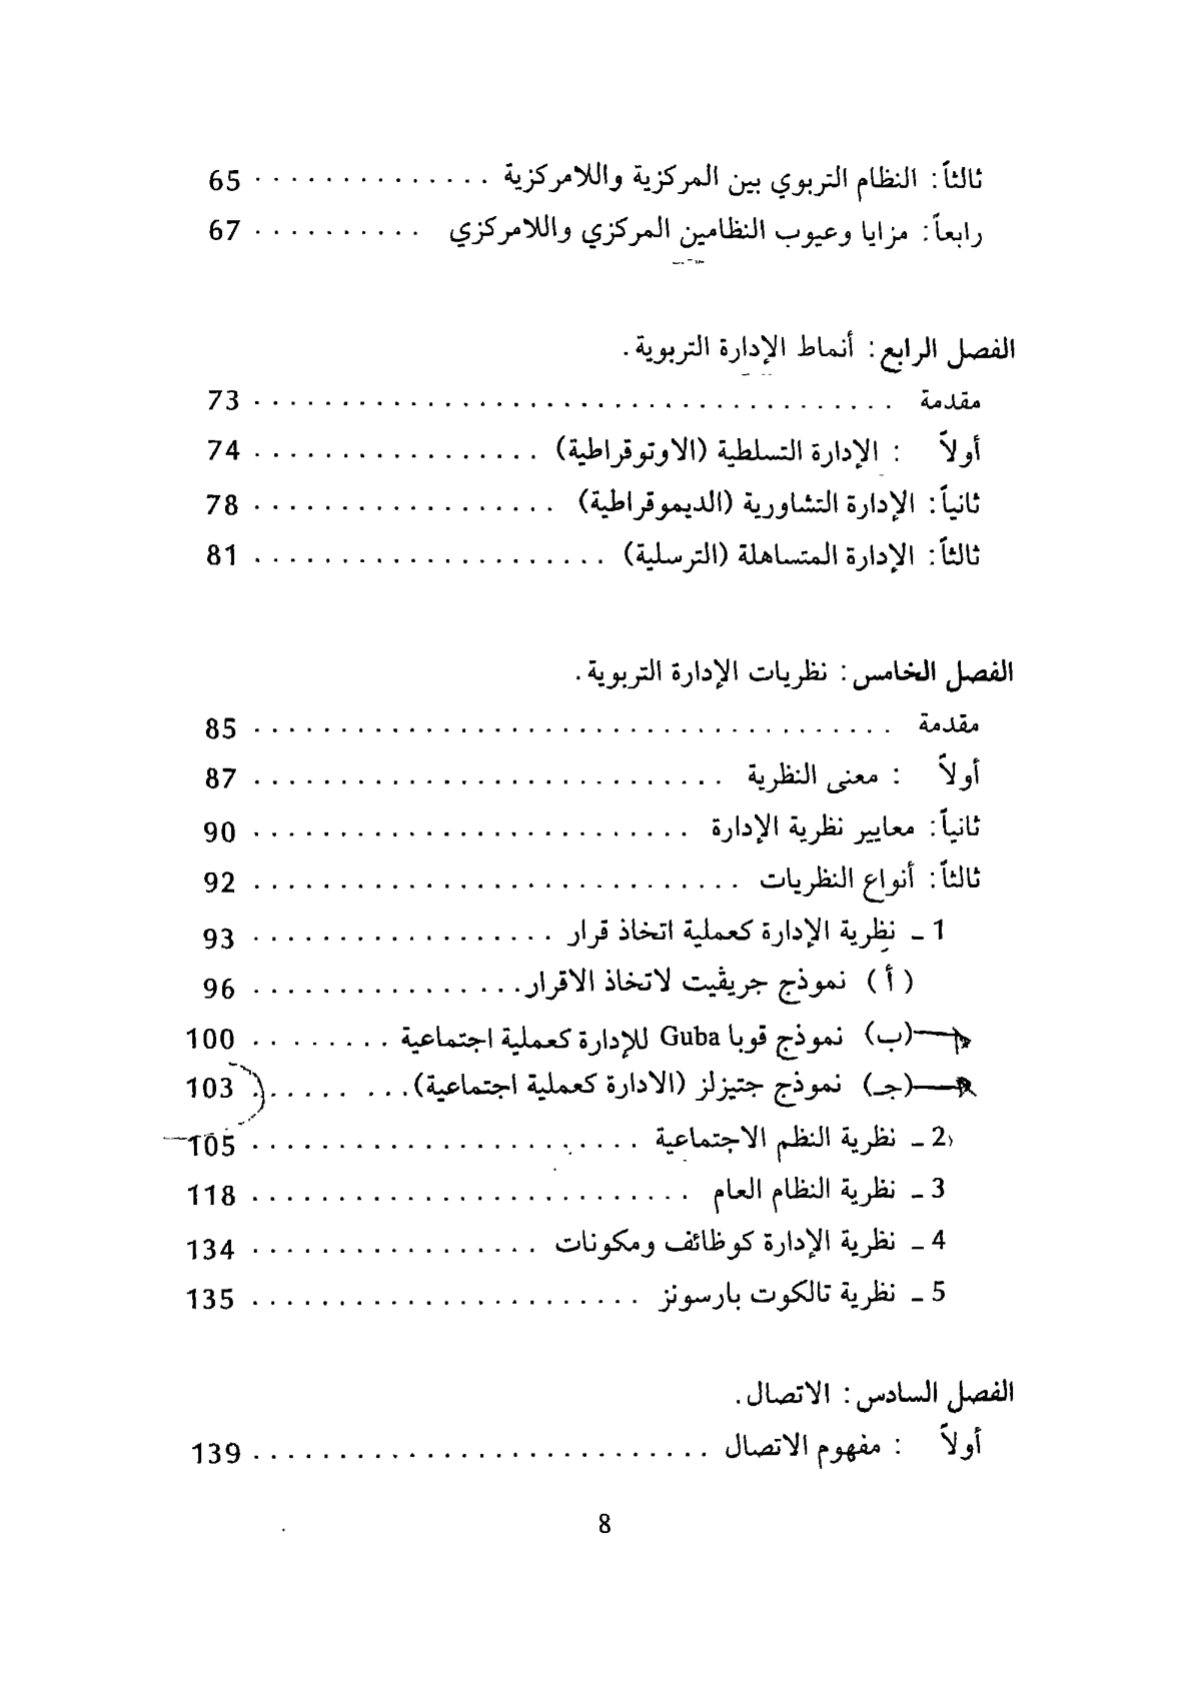 ثالثاً: النظام التربوي بين المركزية واللامركزية . . . . . . . . . . . . . . 65
رابعاً: مزايا وعيوب النظامين المركزي واللامركزي . . . . . . . . . . 67
الفصل الرابع: أنماط الإدارة التربوية.
مقدمة . . . . . . . . . . . . . . . . . . . . . . . . . . . . . . . . . . . . . 73
أولاً : الإدارة التسلطية (الاوتوقراطية) . . . . . . . . . . . . . . . . . 74
ثانياً: الإدارة التشاورية (الديموقراطية) . . . . . . . . . . . . . . . . . . 78
ثالثاً: الإدارة المتساهلة (الترسلية) . . . . . . . . . . . . . . . . . . . . . 81
الفصل الخامس: نظريات الإدارة التربوية.
مقدمة . . . . . . . . . . . . . . . . . . . . . . . . . . . . . . . . . . . . . 85
أولاً : معنى النظرية . . . . . . . . . . . . . . . . . . . . . . . . . . . . 87
ثانياً: معايير نظرية الإدارة . . . . . . . . . . . . . . . . . . . . . . . . . . 90
ثالثاً: أنواع النظريات . . . . . . . . . . . . . . . . . . . . . . . . . . . . . 92
1 ـ نظرية الإدارة كعملية اتخاذ قرار . . . . . . . . . . . . . . . . . . 93
(أ) نموذج جريڤيت لاتخاذ الاقرار . . . . . . . . . . . . . . . . 96
(ب) نموذج قوبا Guba للإدارة كعملية اجتماعية . . . . . . . . 100
(جـ) نموذج جتيزلز (الادارة كعملية اجتماعية) . . . . . . . . . 103
2 ـ نظرية النظم الاجتماعية . . . . . . . . . . . . . . . . . . . . . . . 105
3 ـ نظرية النظام العام . . . . . . . . . . . . . . . . . . . . . . . . . . 118
4 ـ نظرية الإدارة كوظائف ومكونات . . . . . . . . . . . . . . . . . 134
5 ـ نظرية تالكوت بارسونز . . . . . . . . . . . . . . . . . . . . . . . 135
الفصل السادس: الاتصال.
أولاً : مفهوم الاتصال . . . . . . . . . . . . . . . . . . . . . . . . . . . 139
8